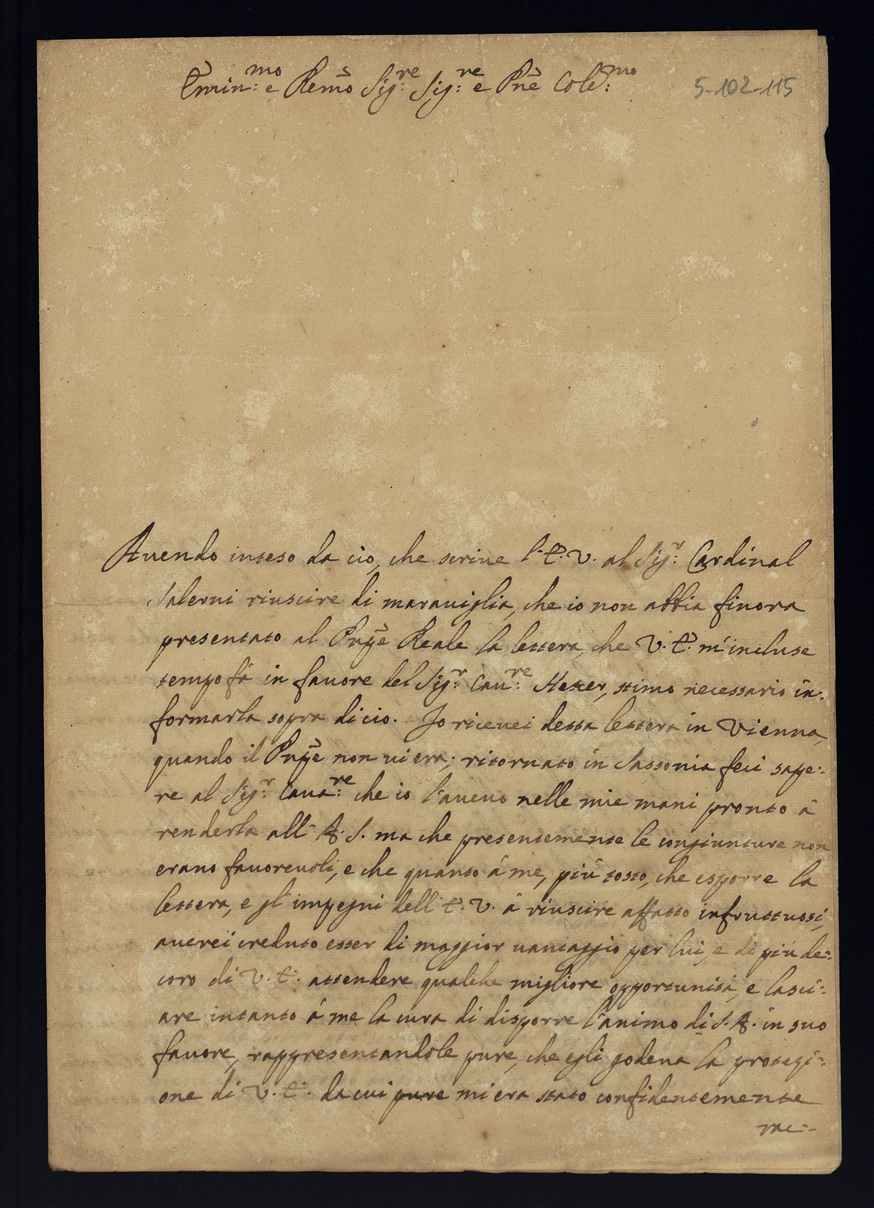 Emin:mo e Remo Sig:re Sig:re e Pne Cole:mo
5-102-115
Auendo inteso da ciò, che scriue l'E.V. al Sig:r Cardinal
Salerni riuscire di marauiglia, che io non abbia finora
presentato al Pnpe Reale la lettera, che V.E. m'incluse
tempo fà in fauore del Sig:r Cau:re stimo necessario in-
formarla sopra di ciò. Io riceuei detta lettera in Vienna,
quando il Pnpe non ui era; ritornato in Sassonia feci sape-
re al Sig:r Caua:re che io l'aueuo nelle mie mani pronto à
renderla all'A.S. ma che presentemente le congiunture non
erano fauoreuoli, e che quanto à me, più tosto, che esporre la
lettera, e gl'impegni dell'E.V. à riuscire affatto infruttuosi,
auerei creduto esser di maggior uantaggio per lui, e di più de-
coro di V.E. attendere qualche migliore opportunità, e lasci-
are intanto à me la cura di disporre l'animo di S.A. in suo
fauore, rappresentandole pure, che egli godeua la protezi-
one di V.E. da cui pure mi era stato confidentemente